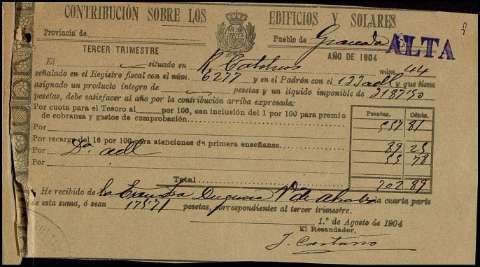 CONTRIBUCIÓN SOBRE LOS EDIFICIOS Y SOLARES
Provincia de Pueblo de Granada ALTA
TERCER TRIMESTRE AÑO DE 1904
El situado en R. Católicos núm. 44
señalado en el Registro fiscal con el núm. 6277 y en el Padrón con el y que tiene
asignado un producto íntegro de pesetas y un líquido imponible de 3187'50
pesetas, debe satisfacer al año por la contribución arriba expresada:
Pesetas. Cénts.
Por cuota para el Tesoro al por 100, sin inclusión del 1 por 100 para premio
de cobranza y gastos de comprobación 557 81
Por recargo del 16 por 100 para atenciones de primera enseñanza. 89 25
Por 55 78
Por
Total 702 87
He recibido de la cuarta parte
de esta suma, ó sean 175'71 pesetas, correspondientes al tercer trimestre.
1.º de Agosto de 1904
El Recaudador,